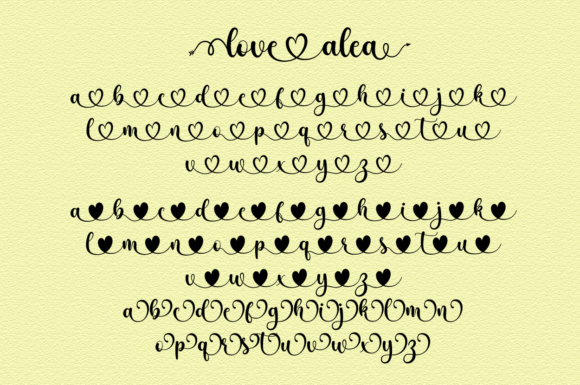 love♡alea
a♡b♡c♡d♡e♡f♡g♡h♡i♡j♡k♡
l♡m♡n♡o♡p♡q♡r♡s♡t♡u♡
v♡w♡x♡y♡z♡
a♥b♥c♥d♥e♥f♥g♥h♥i♥j♥k♥
l♥m♥n♥o♥p♥q♥r♥s♥t♥u♥
v♥w♥x♥y♥z♥
a b c d e f g h i j k l m n
o p q r s t u v w x y z